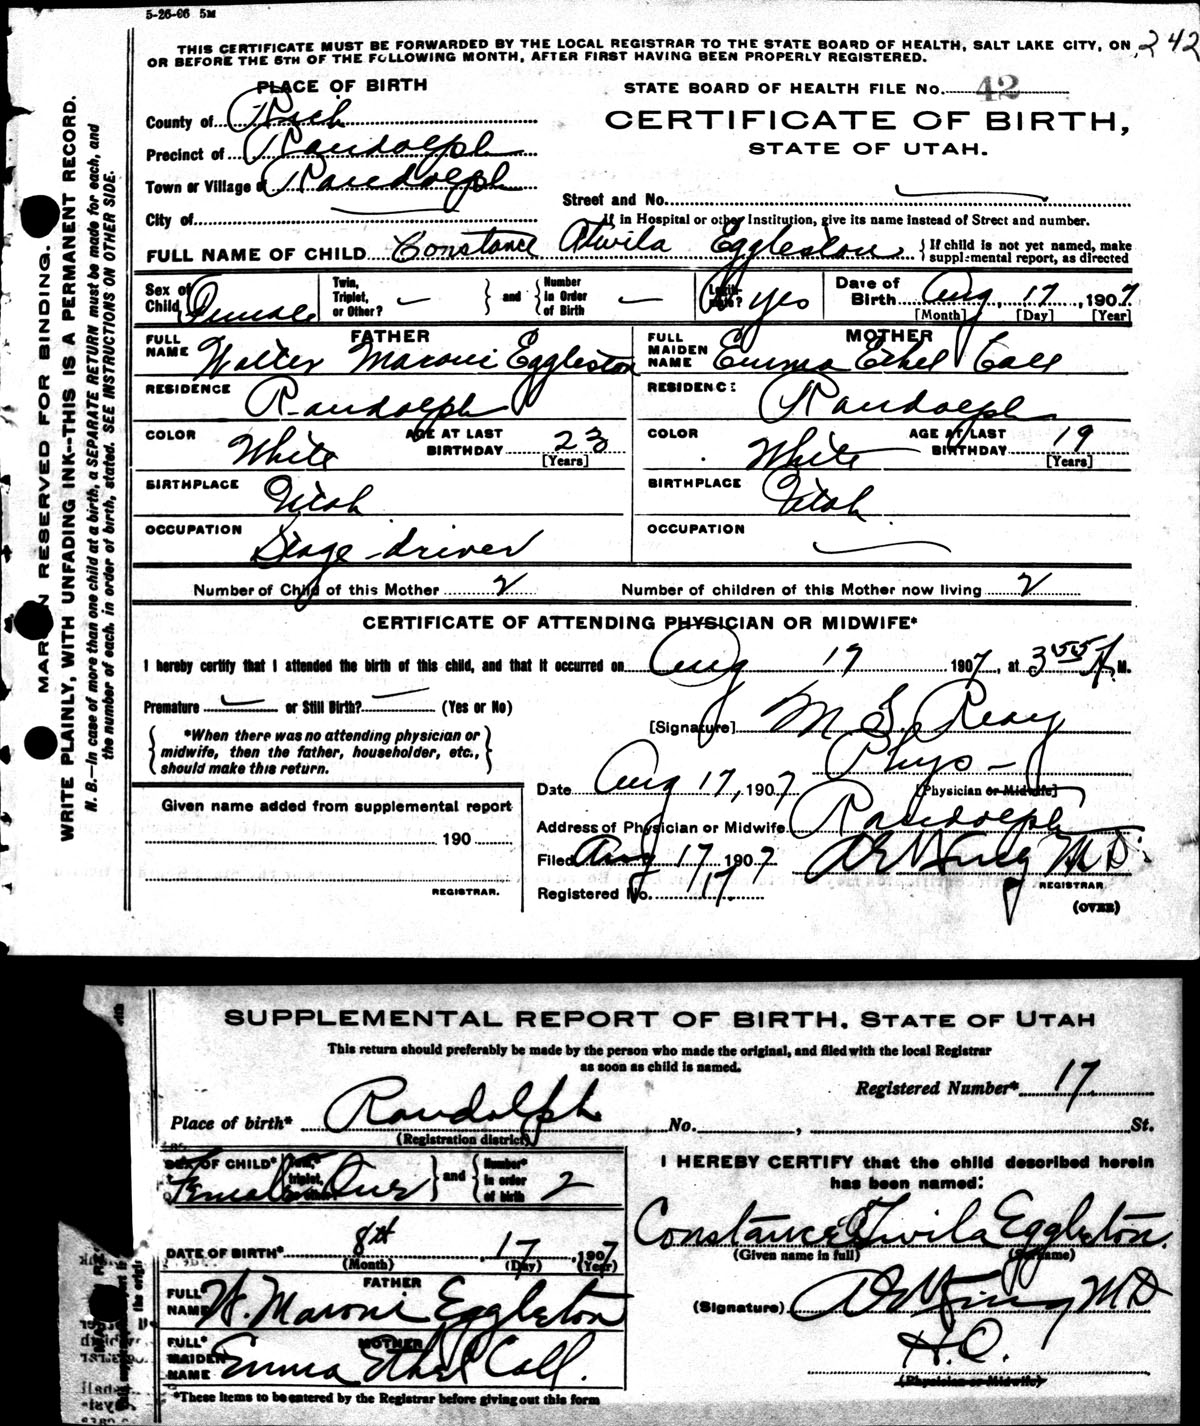 5-26-06 5M
THIS CERTIFICATE MUST BE FORWARDED BY THE LOCAL REGISTRAR TO THE STATE BOARD OF HEALTH, SALT LAKE CITY, ON
OR BEFORE THE 5TH OF THE FOLLOWING MONTH, AFTER FIRST HAVING BEEN PROPERLY REGISTERED.
242
PLACE OF BIRTH
County of Rich
Precinct of Randolph
Town or Village of Randolph
City of
STATE BOARD OF HEALTH FILE No. 42
CERTIFICATE OF BIRTH,
STATE OF UTAH.
Street and No.
If in Hospital or other Institution, give its name instead of Street and number.
FULL NAME OF CHILD Constance Twila Eggleston
If child is not yet named, make
supplemental report, as directed
Sex of Child Female
Twin, Triplet, or Other? — and Number in Order of Birth —
Legitimate? yes
Date of Birth Aug 17, 1907
[Month] [Day] [Year]
FATHER
FULL NAME Walter Maroni Eggleston
RESIDENCE Randolph
COLOR White AGE AT LAST BIRTHDAY 23
[Years]
BIRTHPLACE Utah
OCCUPATION Stage-driver
MOTHER
FULL MAIDEN NAME Emma Ethel Call
RESIDENCE Randolph
COLOR White AGE AT LAST BIRTHDAY 19
[Years]
BIRTHPLACE Utah
OCCUPATION
Number of Child of this Mother 2 Number of children of this Mother now living 2
CERTIFICATE OF ATTENDING PHYSICIAN OR MIDWIFE*
I hereby certify that I attended the birth of this child, and that it occurred on Aug 17 1907, at 3 55 M.
Premature — or Still Birth? — (Yes or No)
*When there was no attending physician or
midwife, then the father, householder, etc.,
should make this return.
[Signature] M S. Reay
Phys-
[Physician or Midwife]
Date Aug 17, 1907
Address of Physician or Midwife Randolph
Filed Aug 17 1907
M D.
REGISTRAR
Registered No. 17
(OVER)
Given name added from supplemental report
190
REGISTRAR.
MARGIN RESERVED FOR BINDING.
WRITE PLAINLY, WITH UNFADING INK--THIS IS A PERMANENT RECORD.
N. B.—In case of more than one child at a birth, a SEPARATE RETURN must be made for each, and
the number of each, in order of birth, stated. SEE INSTRUCTIONS ON OTHER SIDE.
SUPPLEMENTAL REPORT OF BIRTH. STATE OF UTAH
This return should preferably be made by the person who made the original, and filed with the local Registrar
as soon as child is named.
Registered Number* 17
Place of birth* Randolph No. , St.
(Registration district)
SEX OF CHILD* Female Twin, triplet, or other One and Number* in order of birth 2
DATE OF BIRTH* 8th 17, 1907
(Month) (Day) (Year)
FATHER
FULL NAME W. Maroni Eggleton
MOTHER
FULL* MAIDEN NAME Emma Ethel Call.
*These items to be entered by the Registrar before giving out this form
I HEREBY CERTIFY that the child described herein
has been named:
Constance Twila Eggleton.
(Given name in full) (Surname)
(Signature) M D
H.O.
(Physician or Midwife)